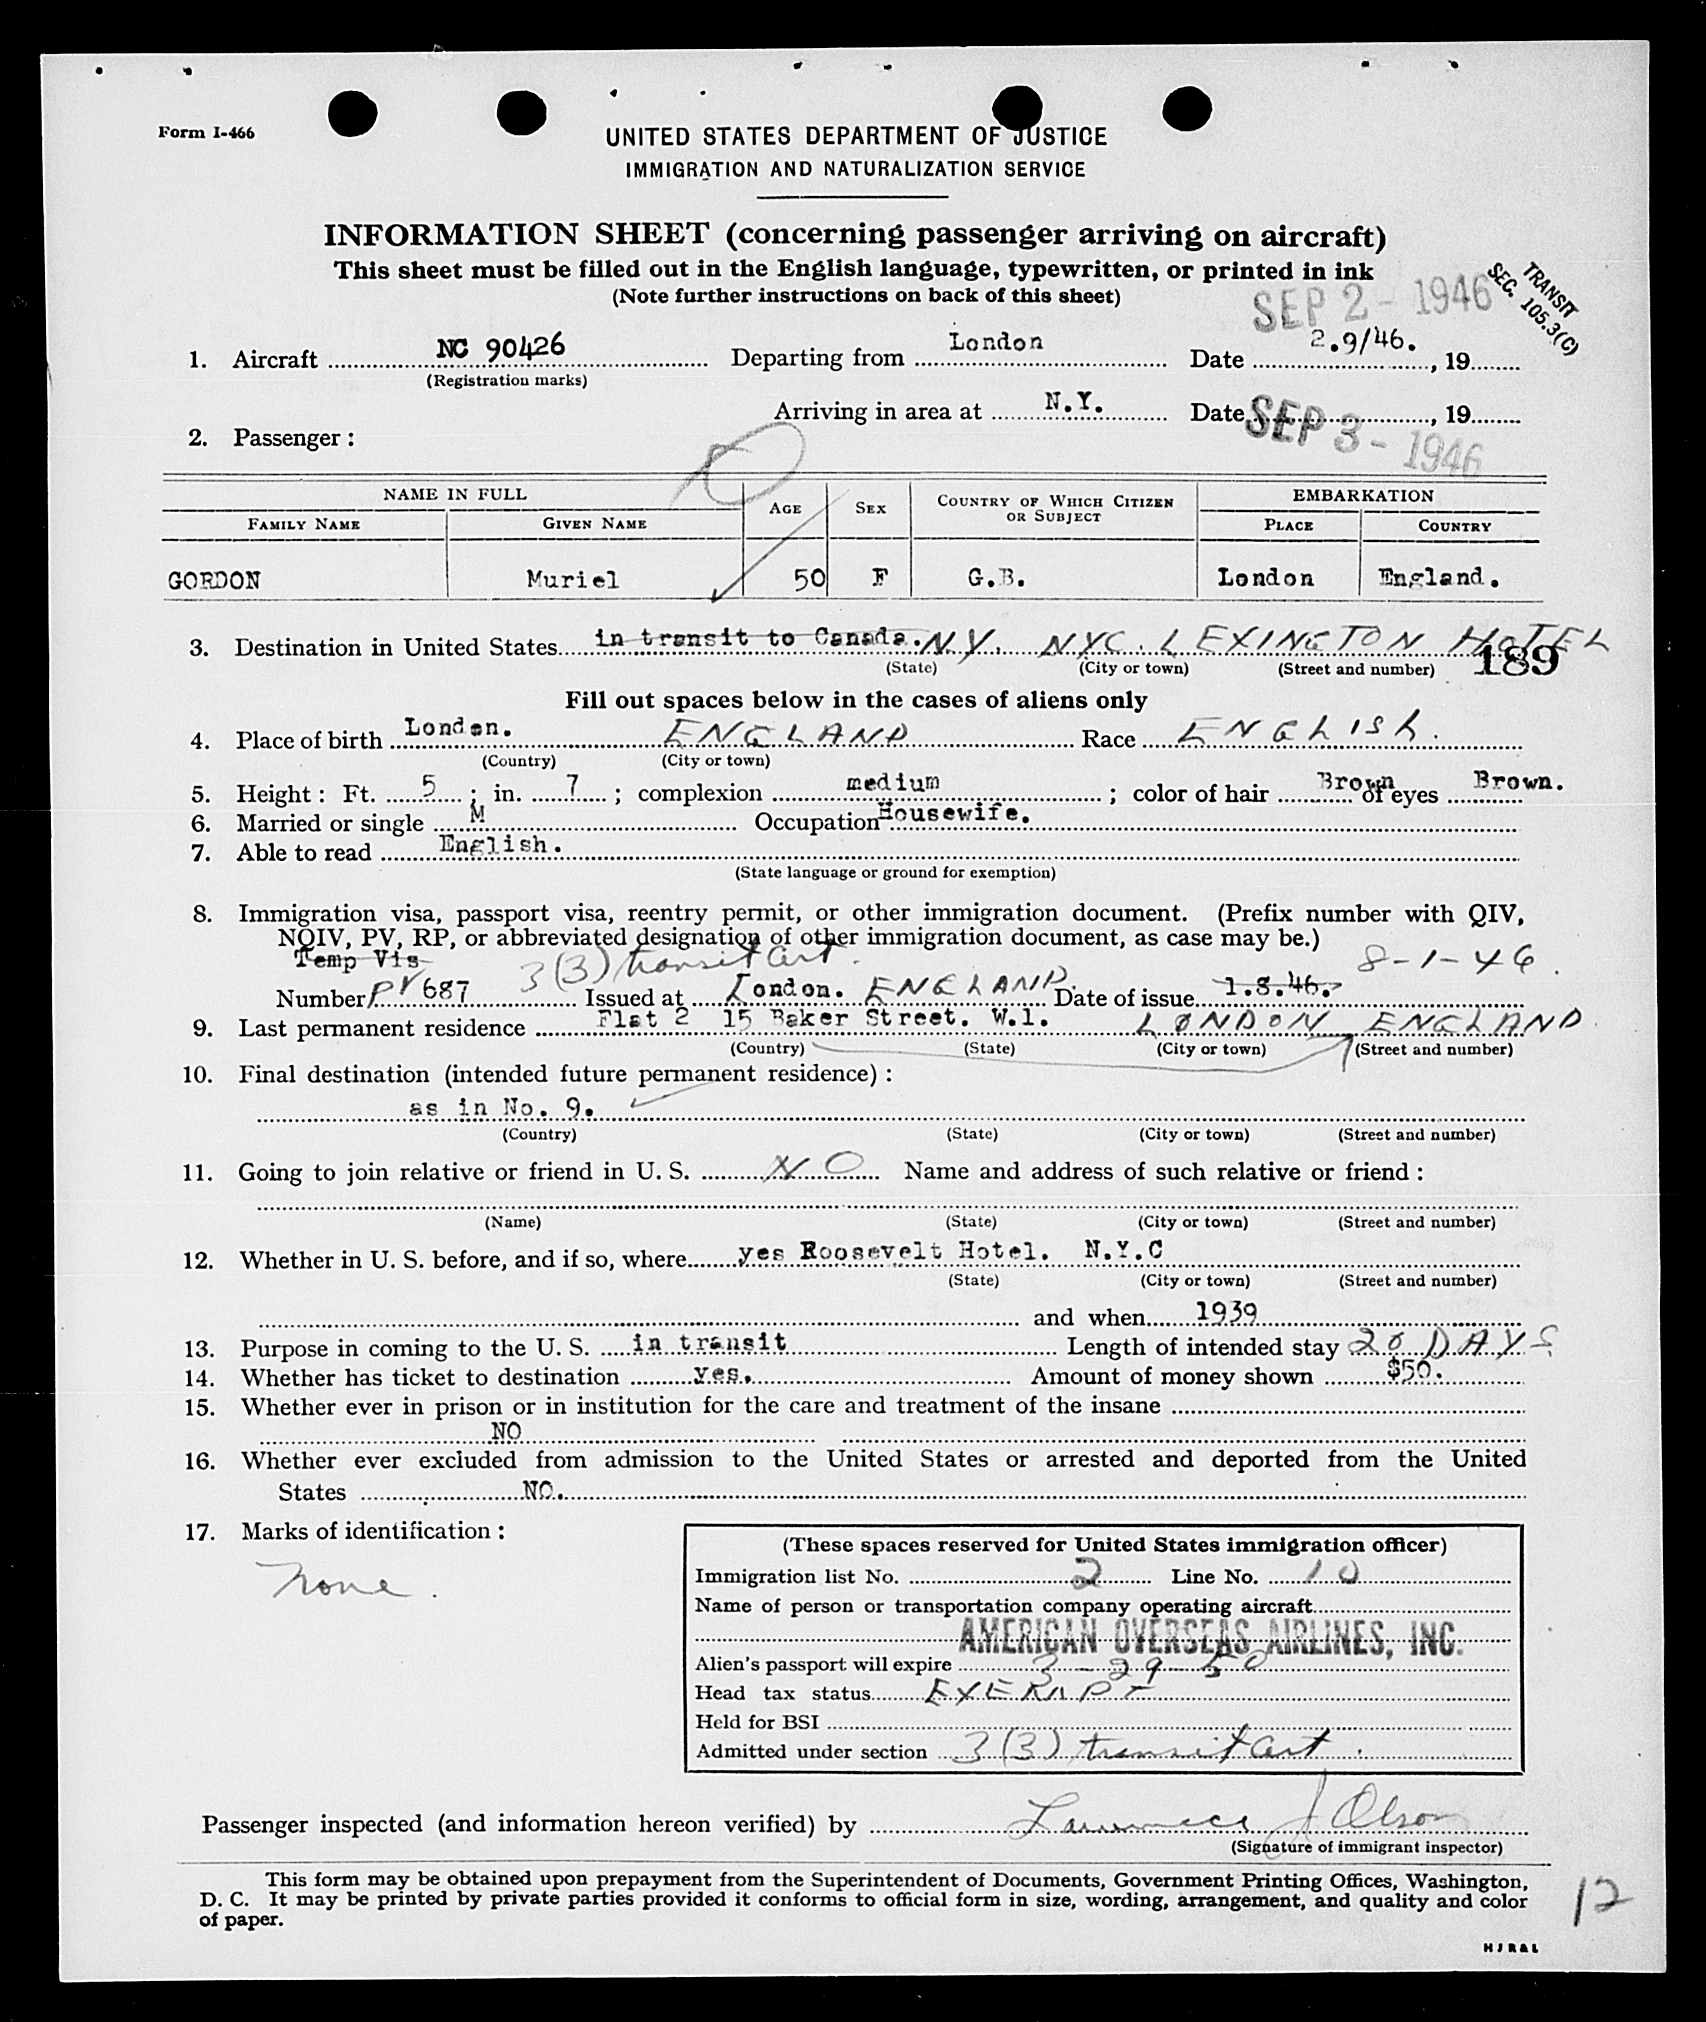 Form I-466
UNITED STATES DEPARTMENT OF JUSTICE
IMMIGRATION AND NATURALIZATION SERVICE
INFORMATION SHEET (concerning passenger arriving on aircraft)
This sheet must be filled out in the English language, typewritten, or printed in ink
(Note further instructions on back of this sheet)
SEP 2 - 1946
TRANSIT
SEC. 105.3(C)
1. Aircraft NC 90426 Departing from London Date 2.9/46. , 19
(Registration marks)
Arriving in area at N.Y. Date SEP 3 - 1946 , 19
2. Passenger :
NAME IN FULL AGE SEX COUNTRY OF WHICH CITIZEN OR SUBJECT EMBARKATION
FAMILY NAME GIVEN NAME PLACE COUNTRY
GORDON Muriel 50 F G.B. London England.
3. Destination in United States in transit to Canada. N.Y. NYC. LEXINGTON HOTEL
(State) (City or town) (Street and number) 189
Fill out spaces below in the cases of aliens only
4. Place of birth London. ENGLAND Race ENGLISH.
(Country) (City or town)
5. Height : Ft. 5 ; in. 7 ; complexion medium ; color of hair Brown of eyes Brown.
6. Married or single M Occupation Housewife.
7. Able to read English.
(State language or ground for exemption)
8. Immigration visa, passport visa, reentry permit, or other immigration document. (Prefix number with QIV,
NQIV, PV, RP, or abbreviated designation of other immigration document, as case may be.)
Temp Vis 3(3) transit cert. 8-1-46.
Number PV 687 Issued at London. ENGLAND. Date of issue 1.8.46.
9. Last permanent residence Flat 2 15 Baker Street. W.1. LONDON ENGLAND
(Country) (State) (City or town) (Street and number)
10. Final destination (intended future permanent residence) :
as in No. 9.
(Country) (State) (City or town) (Street and number)
11. Going to join relative or friend in U. S. NO Name and address of such relative or friend :
(Name) (State) (City or town) (Street and number)
12. Whether in U. S. before, and if so, where yes Roosevelt Hotel. N.Y.C
(State) (City or town) (Street and number)
and when 1939
13. Purpose in coming to the U. S. in transit Length of intended stay 20 DAYS
14. Whether has ticket to destination yes. Amount of money shown $50.
15. Whether ever in prison or in institution for the care and treatment of the insane
NO
16. Whether ever excluded from admission to the United States or arrested and deported from the United
States NO.
17. Marks of identification :
None.
(These spaces reserved for United States immigration officer)
Immigration list No. 2 Line No. 10
Name of person or transportation company operating aircraft
AMERICAN OVERSEAS AIRLINES, INC.
Alien's passport will expire 3-29-50
Head tax status EXEMPT
Held for BSI
Admitted under section 3(3) transit cert.
Passenger inspected (and information hereon verified) by Lawrence J Olson
(Signature of immigrant inspector)
This form may be obtained upon prepayment from the Superintendent of Documents, Government Printing Offices, Washington,
D. C. It may be printed by private parties provided it conforms to official form in size, wording, arrangement, and quality and color
of paper.
12
HJR&L